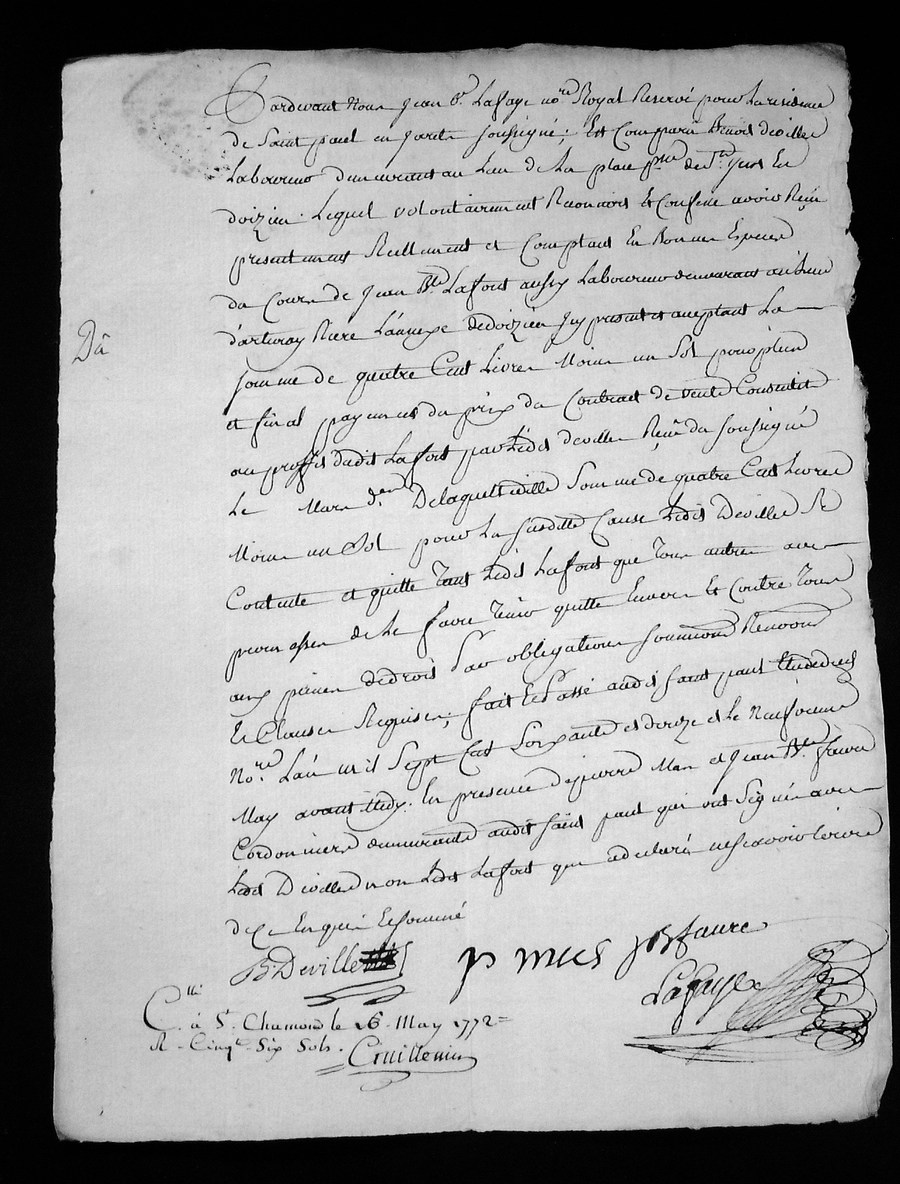 Pardevant Nous Jean Bte. Lafaye nore. Royal Reservé pour la residence
de Saint paul en Jarets soussigné; Est Comparu Benois deville
Laboureur demeurant au Lieu de la place psse. de St. Just En
doizieu. Lequel volontairement Reconnois et Confesse avoir Reçu
presentement Reellement et Comptant En Bonnes Especes
du Cours de Jean Bte. Lafont aussy Laboureur demeurant au Lieu
Riere L'annexe de doizieu Icy present et aceptant La
somme de quatre Cent Livres Moins un Sol pour plein
et final payement du prix du Contract de vente Consentit
au proffit dudit Lafont par Ledit deville Reçu du soussigné
Le Mars der. De laquelle ditte Somme de quatre Cent Livres
Moins un Sol pour La susditte Cause Ledit Deville Se
Contente et quitte tant Ledit Lafont que tous autres avec
promesses de Le faire tenir quitte Envers Et Contre tous
aux peines de droit Par obligations soumissions Renonons
Et Clauses Requises; fait Et Passé audit Saint paul Etude dudit
Nore. L'an mil Sept Cent Soixante et douze et le Neufvieme
May avant Midy. En presence de pierre et Jean Bte. faure
Cordonniers demeurants audit Saint paul qui ont Signé avec
Ledit Deville non Ledit Lafont qui a declaré ne scavoir Ecrire
de Ce Enquis Et Sommé
Du
B. Deville
p
JB faure
Lafaye
Clle.
C. à St. Chamond le 16 May 1772 =
R - Cinqt. Six Sols.